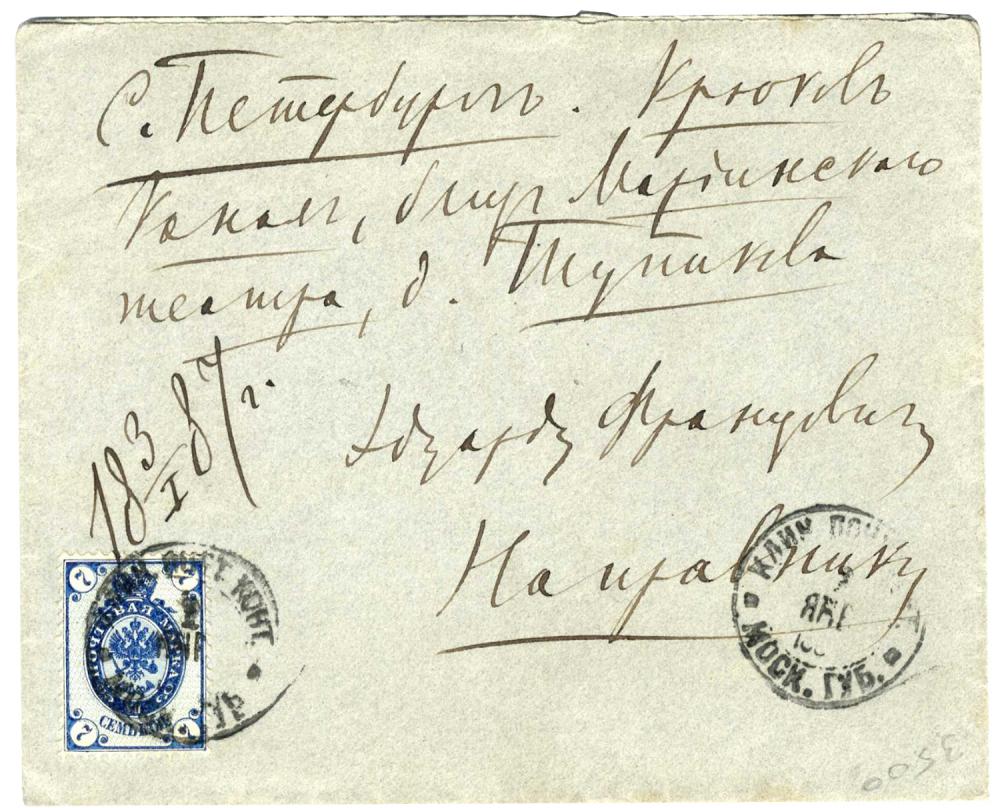 С. Петербургъ. Крюковъ
каналъ, близъ Маріинскаго
театра, д. Тупикова
18 3/I 87 г.
Эдуарду Францовичу
Направнику
КЛИН. ПОЧТ.
ЯНВ
МОСК. ГУБ.
ПОЧТ. КОНТ.
ЯНВ
7 7
ПОЧТОВАЯ МАРКА
СЕМЬ КОП.
7 7
3500